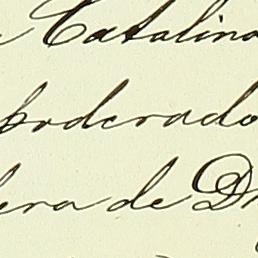 Catalina
poderado
era de D